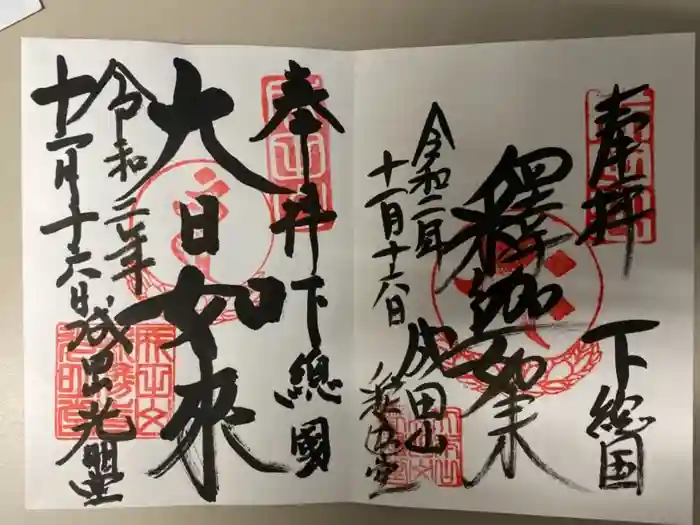 奉拝
下総国
釋迦如来
令和二年
十一月十六日
成田山
釈迦堂
奉拝
下總國
大日如来
令和二年
十一月十六日
成田山光明堂